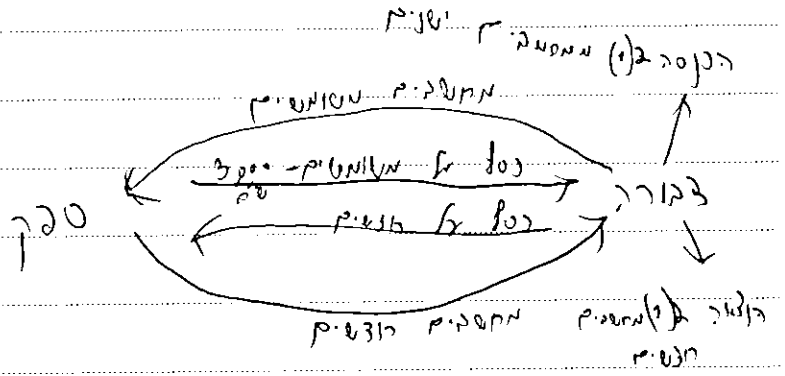 ישנים
הכנסה 2(1) ממחשבים
מחשבים משומשים
כסף על משומשים - 3,000
ש"ח
דבורה
ספק
כסף על חדשים
מחשבים חדשים
הוצאה 2(1) מחשבים
חדשים